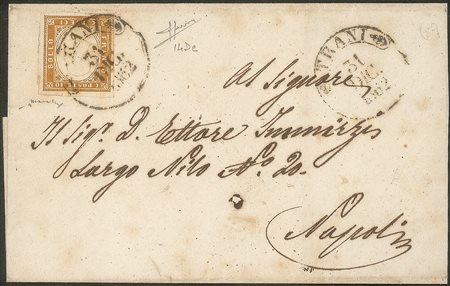 BOLLO
TRANI
31
DIC.
1862
14Dc
TRANI
31
DIC.
1862
Al Signore
Il Sig.r D. Ettore Immirzj
Largo Nilo No. 20.
Napoli